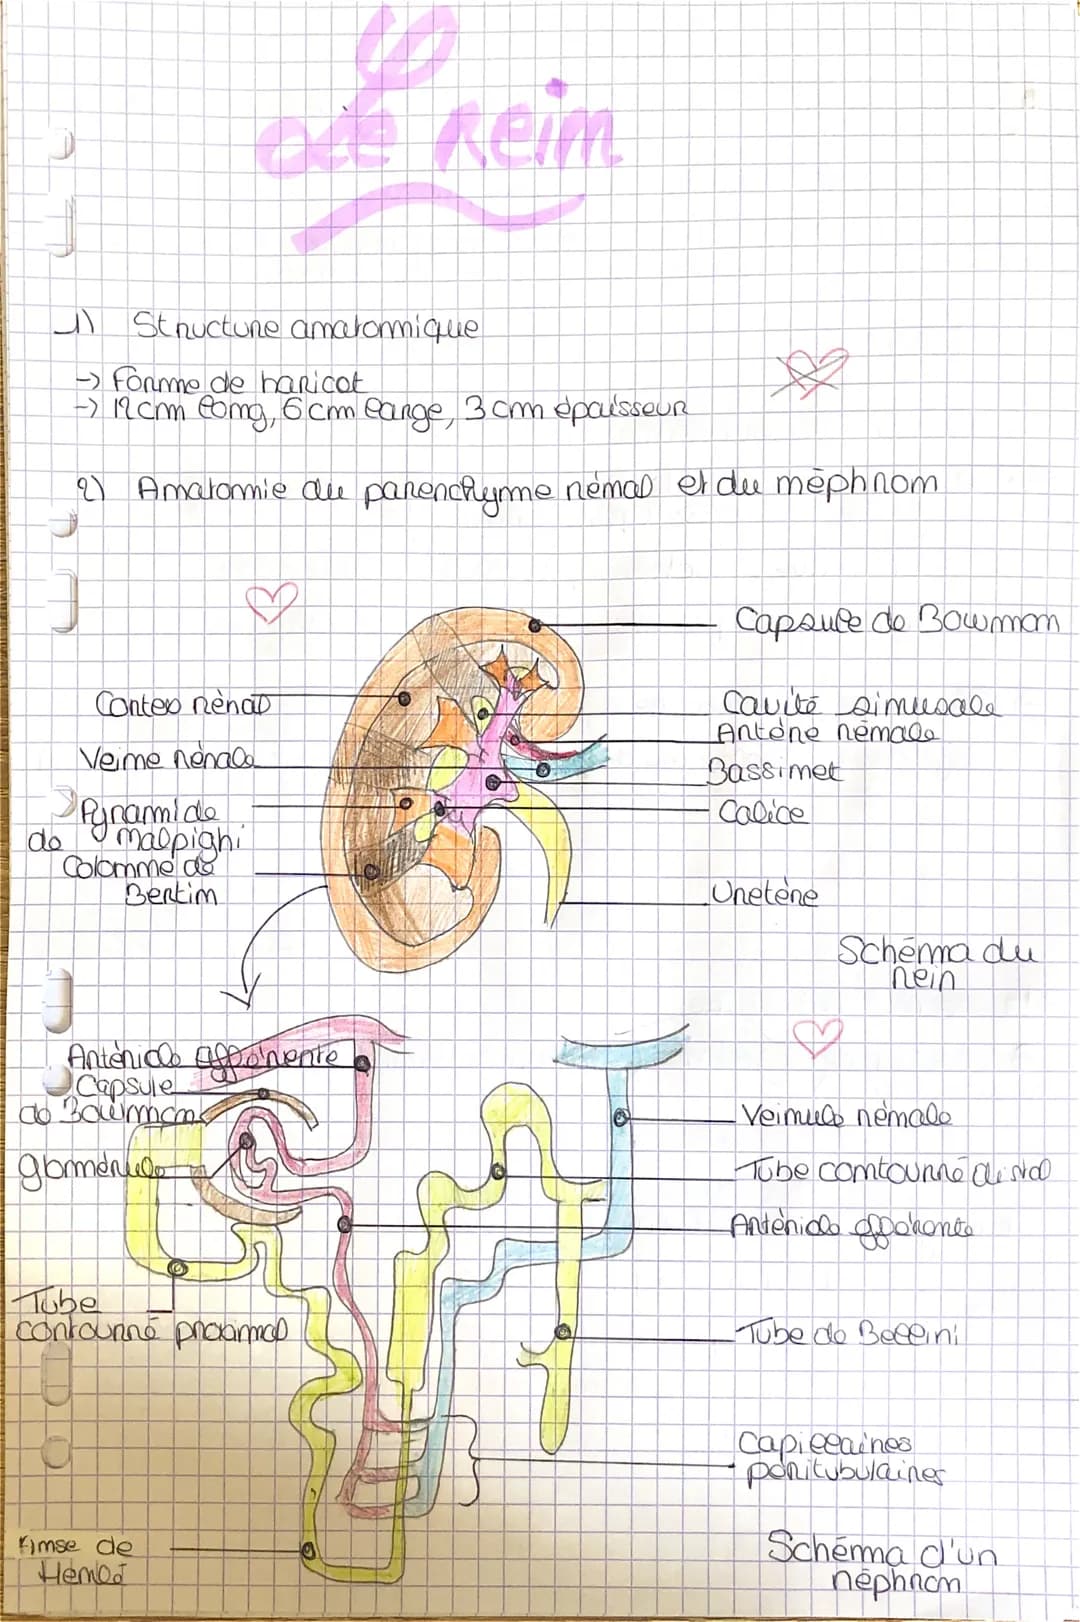 Le rein
1) Structure anatomique
-> Forme de haricot
-> 12cm long, 6cm large, 3cm épaisseur
2) Anatomie du parenchyme rénal et du néphron
Capsule de Bowman
Cortex rénal
Cavité sinusale
Artère rénale
Veine rénale
Bassinet
Pyramide
de Malpighi
Calice
Colonne de
Bertin
Uretère
Schéma du
rein
Artériole afférente
Capsule
de Bowman
Veinule rénale
glomérule
Tube contourné distal
Artériole efférente
Tube
contourné proximal
Tube de Bellini
Capillaires
péritubulaires
Anse de
Henlé
Schéma d'un
néphron